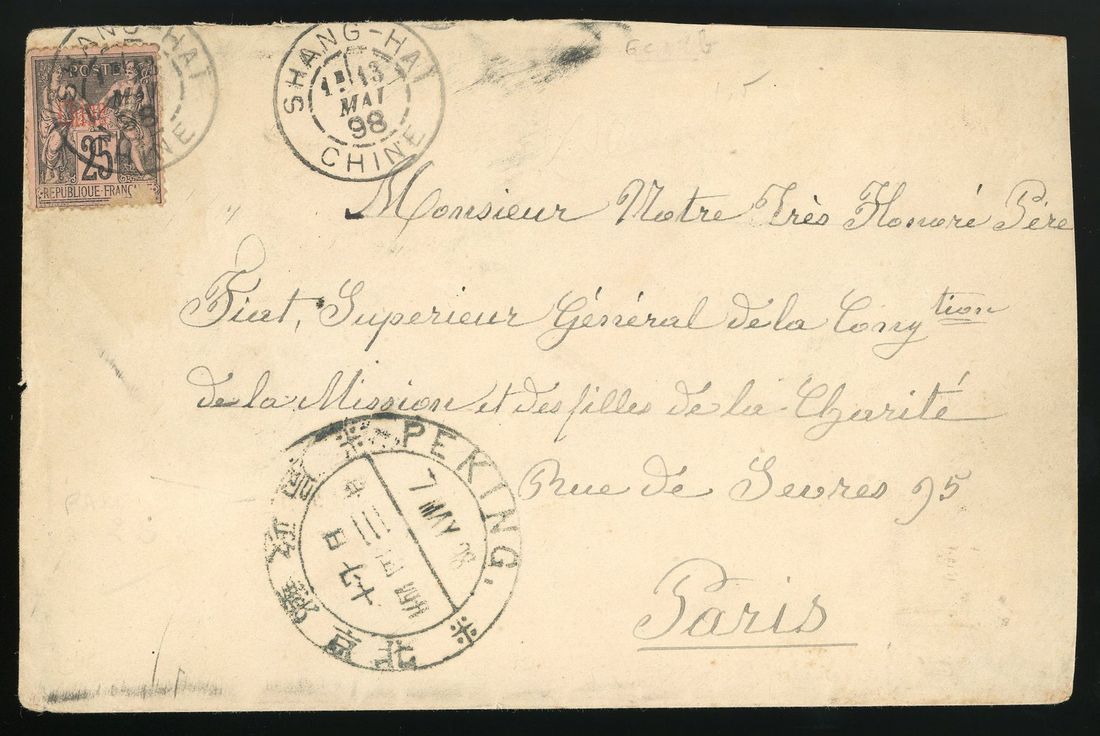 SHANG-HAI
CHINE
POSTE
25
REPUBLIQUE-FRANÇ
SHANG-HAI
13
MAI
98
CHINE
Monsieur Notre Très Honoré Père
Fiat, Superieur Général de la Congtion
de la Mission et des filles de la Charité
Rue de Sevres 95
Paris
PEKING.
7 MAY 98
北京